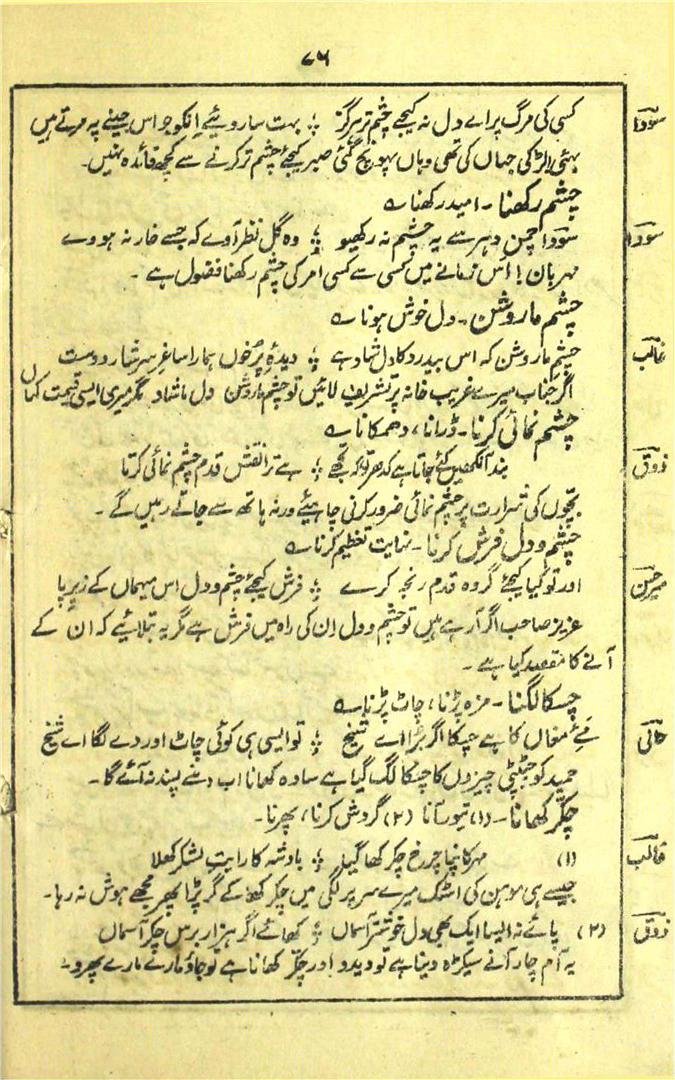 ۷۶
سودا کسی کی مرگ پر اے دل نہ کیجے چشم تر ہرگز ؛ بہت سا رویئے اِنکو جو اس جینے پہ مرتے ہیں
بھئی لڑکی جہاں کی تھی وہاں پہونچ گئی صبر کیجئے چشم تر کرنے سے کچھ فائدہ نہیں۔
چشم رکھنا۔ امید رکھنا ؎
سودا سودا چمن دہر سے یہ چشم نہ رکھیو ؛ وہ گل نظر آوے کہ جسے خار نہ ہووے
مہربان! اس زمانے میں کسی سے کسی امر کی چشم رکھنا فضول ہے ۔
چشم ما روشن۔ دل خوش ہونا ؎
غالب چشم ما روشن کہ اس بیدرد کا دل شاد ہے ؛ دیدۂ پُرخوں ہمارا ساغر سرشار دوست
اگر جناب میرے غریب خانہ پر تشریف لائیں تو چشم ما روشن دل ماشاد مگر میری ایسی قسمت کہاں
چشم نمائی کرنا۔ ڈرانا، دھمکانا ؎
ذوق بند آنکھیں کئے جاتا ہے کدھر تو کہ تجھے ؛ ہے ترا نقش قدم چشم نمائی کرتا
بچّوں کی شرارت پر چشم نمائی ضرور کرنی چاہیئے ورنہ ہاتھ سے جاتے رہیں گے ۔
چشم و دل فرش کرنا ۔ نہایت تعظیم کرنا ؎
میر حسن اور تو کیا کیجئے گر وہ قدم رنجہ کرے ؛ فرش کیجئے چشم و دل اس میہماں کے زیر پا
عزیز صاحب اگر آرہے ہیں تو چشم و دل اِن کی راہ میں فرش ہے مگر یہ بتلائیے کہ ان کے
آنے کا مقصد کیا ہے ۔
چسکا لگنا ۔ مزہ پڑنا، چاٹ پڑنا ؎
حالی مَے مغاں کا ہے چسکا اگر بُرا اے شیخ ؛ تو ایسی ہی کوئی چاٹ اور دے لگا اے شیخ
حمید کو چٹپٹی چیزوں کا چسکا لگ گیا ہے سادہ کھانا اب اسے پسند نہ آئے گا۔
چکّر کھانا۔ (۱) تیورآنا (۲) گردش کرنا، پھرنا۔
غالب (۱) مہر کانپا چرخ چکر کھا گیا ؛ بادشہ کا رایتِ لشکر کھلا
جیسے ہی موہن کی اسٹک میرے سر پر لگی میں چکر کھا کے گر پڑا پھر مجھے ہوش نہ رہا۔
ذوق (۲) پائے نہ ایسا ایک بھی دل خوشتر آسماں ؛ کھائے اگر ہزار برس چکر آسماں
یہ آم چار آنے سیکڑہ دیتا ہے تو دیدو اور چکّر کھانا ہے تو جاؤ مارے مارے پھرو۔